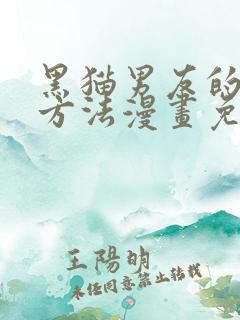 黑猫男友的
方法漫畫免
王陽明
未经同意禁止转载